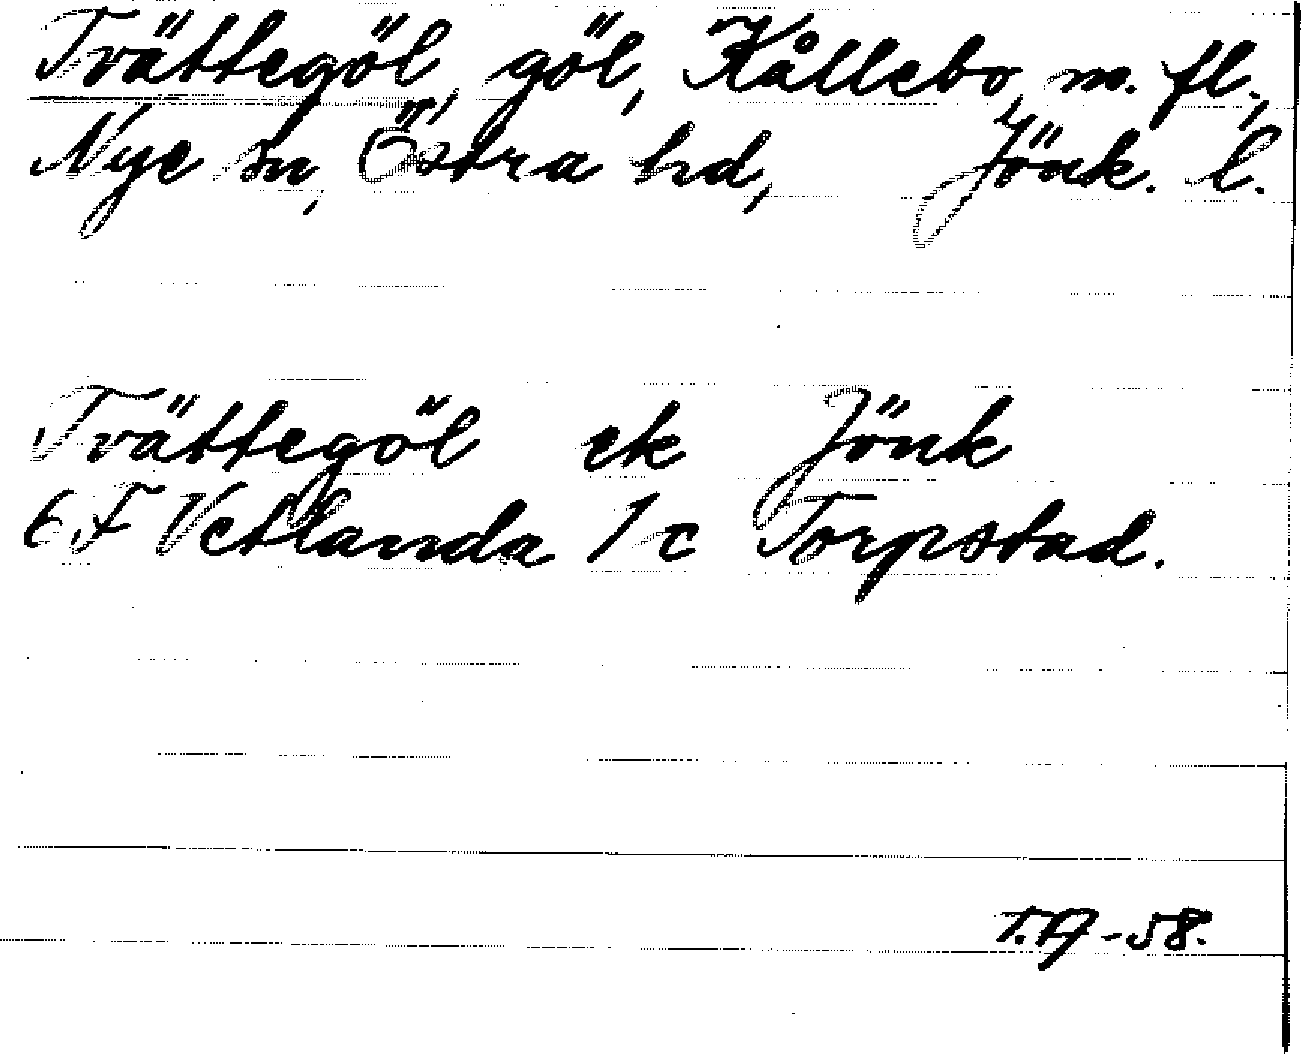 Tvättegöl, göl, Kållebo, m. fl.,
Nye sn, Östra hd, Jönk. l.
Tvättegöl ek Jönk
6 F Vetlanda 1 c Torpstad.
T.A -58.